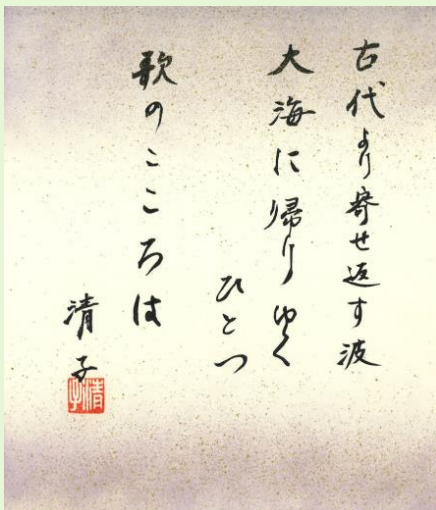 古代より寄せ返す波
大海に帰りゆく
ひとつ
歌のこころは
清子
清子